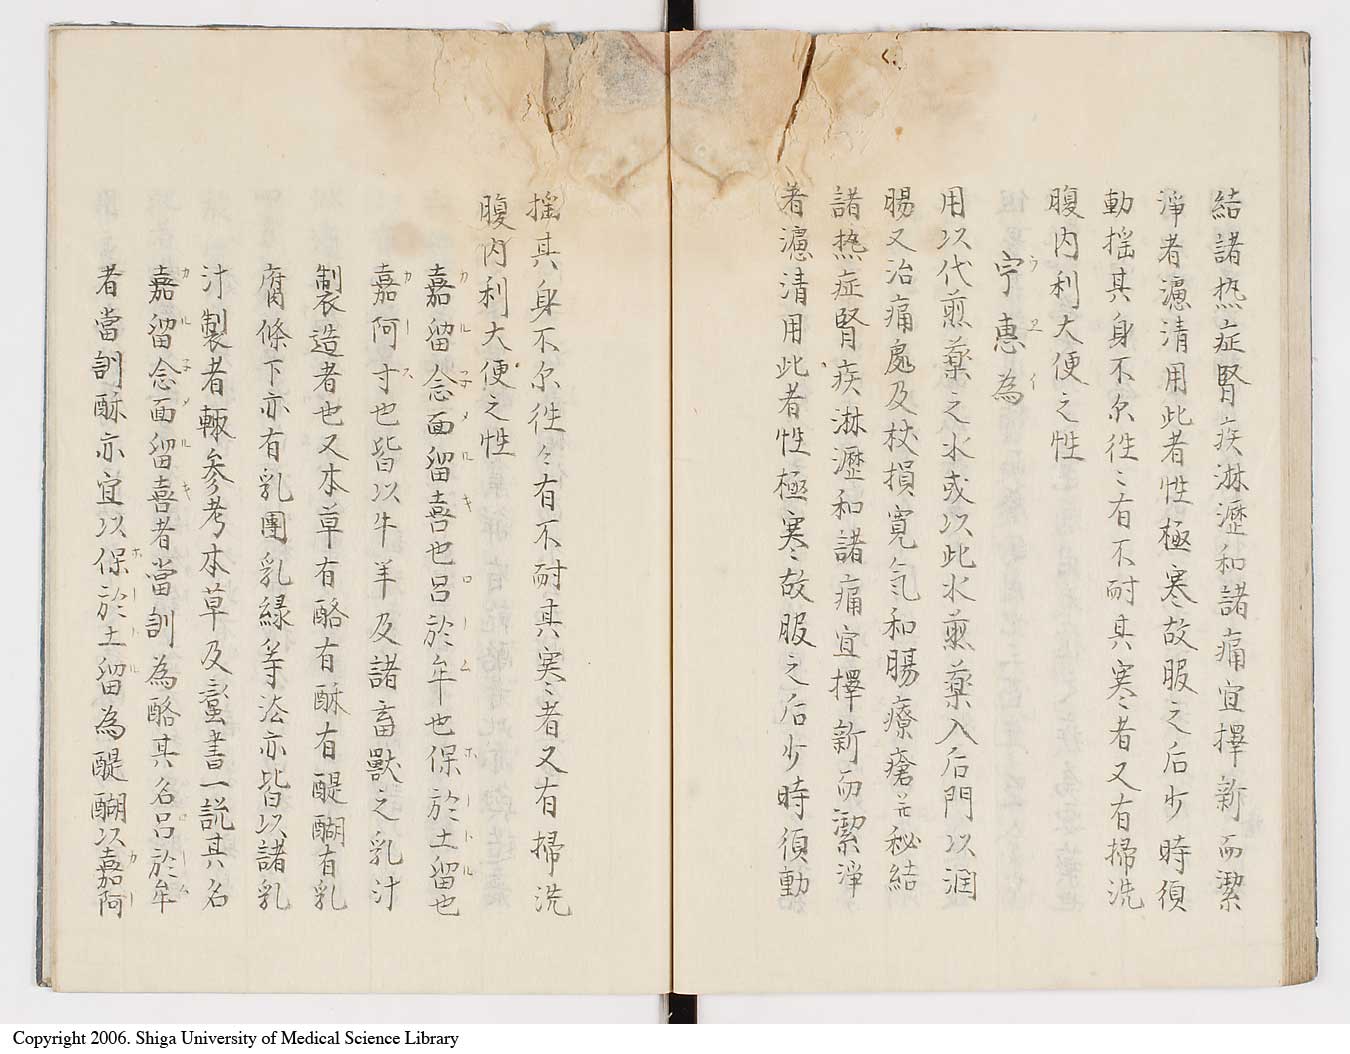 結諸热症腎疾淋瀝和諸痛宜擇新而潔
淨者濾清用此者性極寒故服之后少時須
動揺其身不尓徃〻有不耐其寒者又有掃洗
腹内利大便之性
宁惠為
ウヱイ
用以代煎薬之水或以此水煎薬入后門以润
腸又治痛處及杖損寛気和腸療瘡并秘結
諸热症腎疾淋瀝和諸痛宜擇新而潔淨
者濾清用此者性極寒故服之后少時須動
揺其身不尓徃〻有不耐其寒〻者又有掃洗
腹内利大便之性
嘉留念面留喜也呂於牟也保於土留也
カルネメルキ ロームホートル
嘉阿寸也皆以牛羊及諸畜獸之乳汁
カース
製造者也又本草有酪有酥有醍醐有乳
腐條下亦有乳團乳緑等法亦皆以諸乳
汁製者輙参考本草及蛮書一説其名
嘉留念面留喜者當訓為酪其名呂於牟
カルネメルキ ローム
者當訓酥亦宜以保於土留為醍醐以嘉阿
ホートル カー
Copyright 2006. Shiga University of Medical Science Library